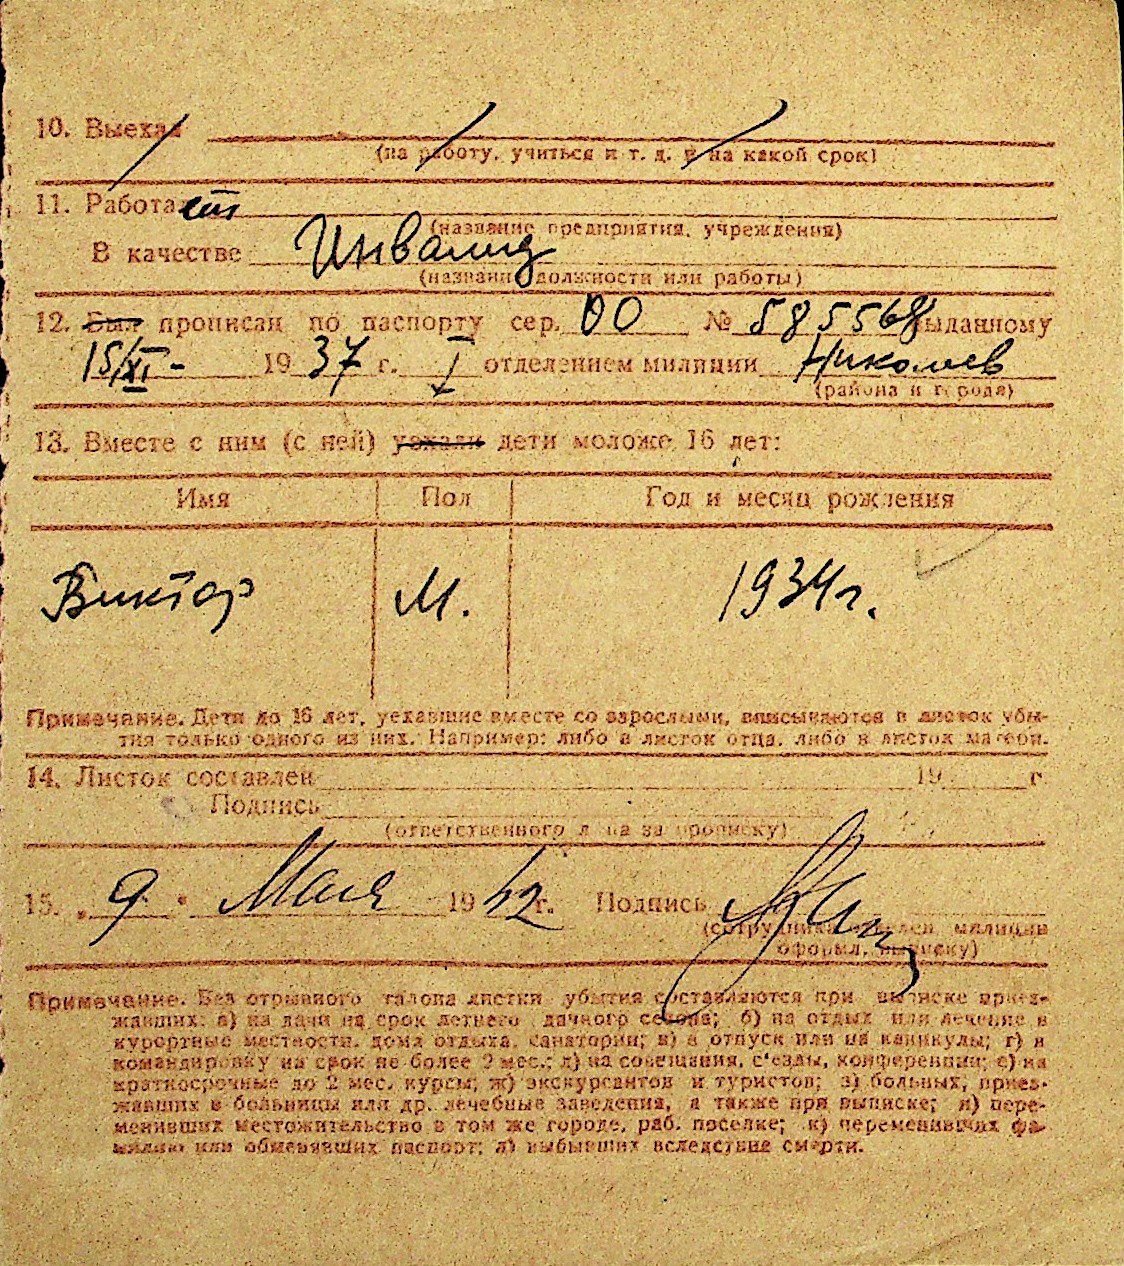 10. Выехал
(на работу, учиться и т. д. и на какой срок)
11. Работает
(название предприятия, учреждения)
В качестве Инвалид
(название должности или работы)
12. Был прописан по паспорту сер. ОО № 585568 выданному
15/XI - 1937 г. I отделением милиции Николаев
(района и города)
13. Вместе с ним (с ней) уехали дети моложе 16 лет:
Имя Пол Год и месяц рождения
Виктор М. 1934 г.
Примечание. Дети до 16 лет, уехавшие вместе со взрослыми, вписываются в листок убы-
тия только одного из них. Например: либо в листок отца, либо в листок матери.
14. Листок составлен 19 г
Подпись
(ответственного лица за прописку)
15. „9" Мая 1942 г. Подпись
(сотрудника отделен. милиции
оформл. выписку)
Примечание. Без отрывного талона листки убытия составляются при выписке приез-
жавших: а) на дачи на срок летнего дачного сезона; б) на отдых или лечение в
курортные местности, дома отдыха, санатории; в) в отпуск или на каникулы; г) в
командировку на срок не более 2 мес.; д) на совещания, с'езды, конференции; е) на
краткосрочные до 2 мес. курсы; ж) экскурсантов и туристов; з) больных, приез-
жавших в больницы или др. лечебные заведения, а также при выписке; и) пере-
менивших местожительство в том же городе, раб. поселке; к) переменивших фа-
милию или обменявших паспорт; л) выбывших вследствие смерти.